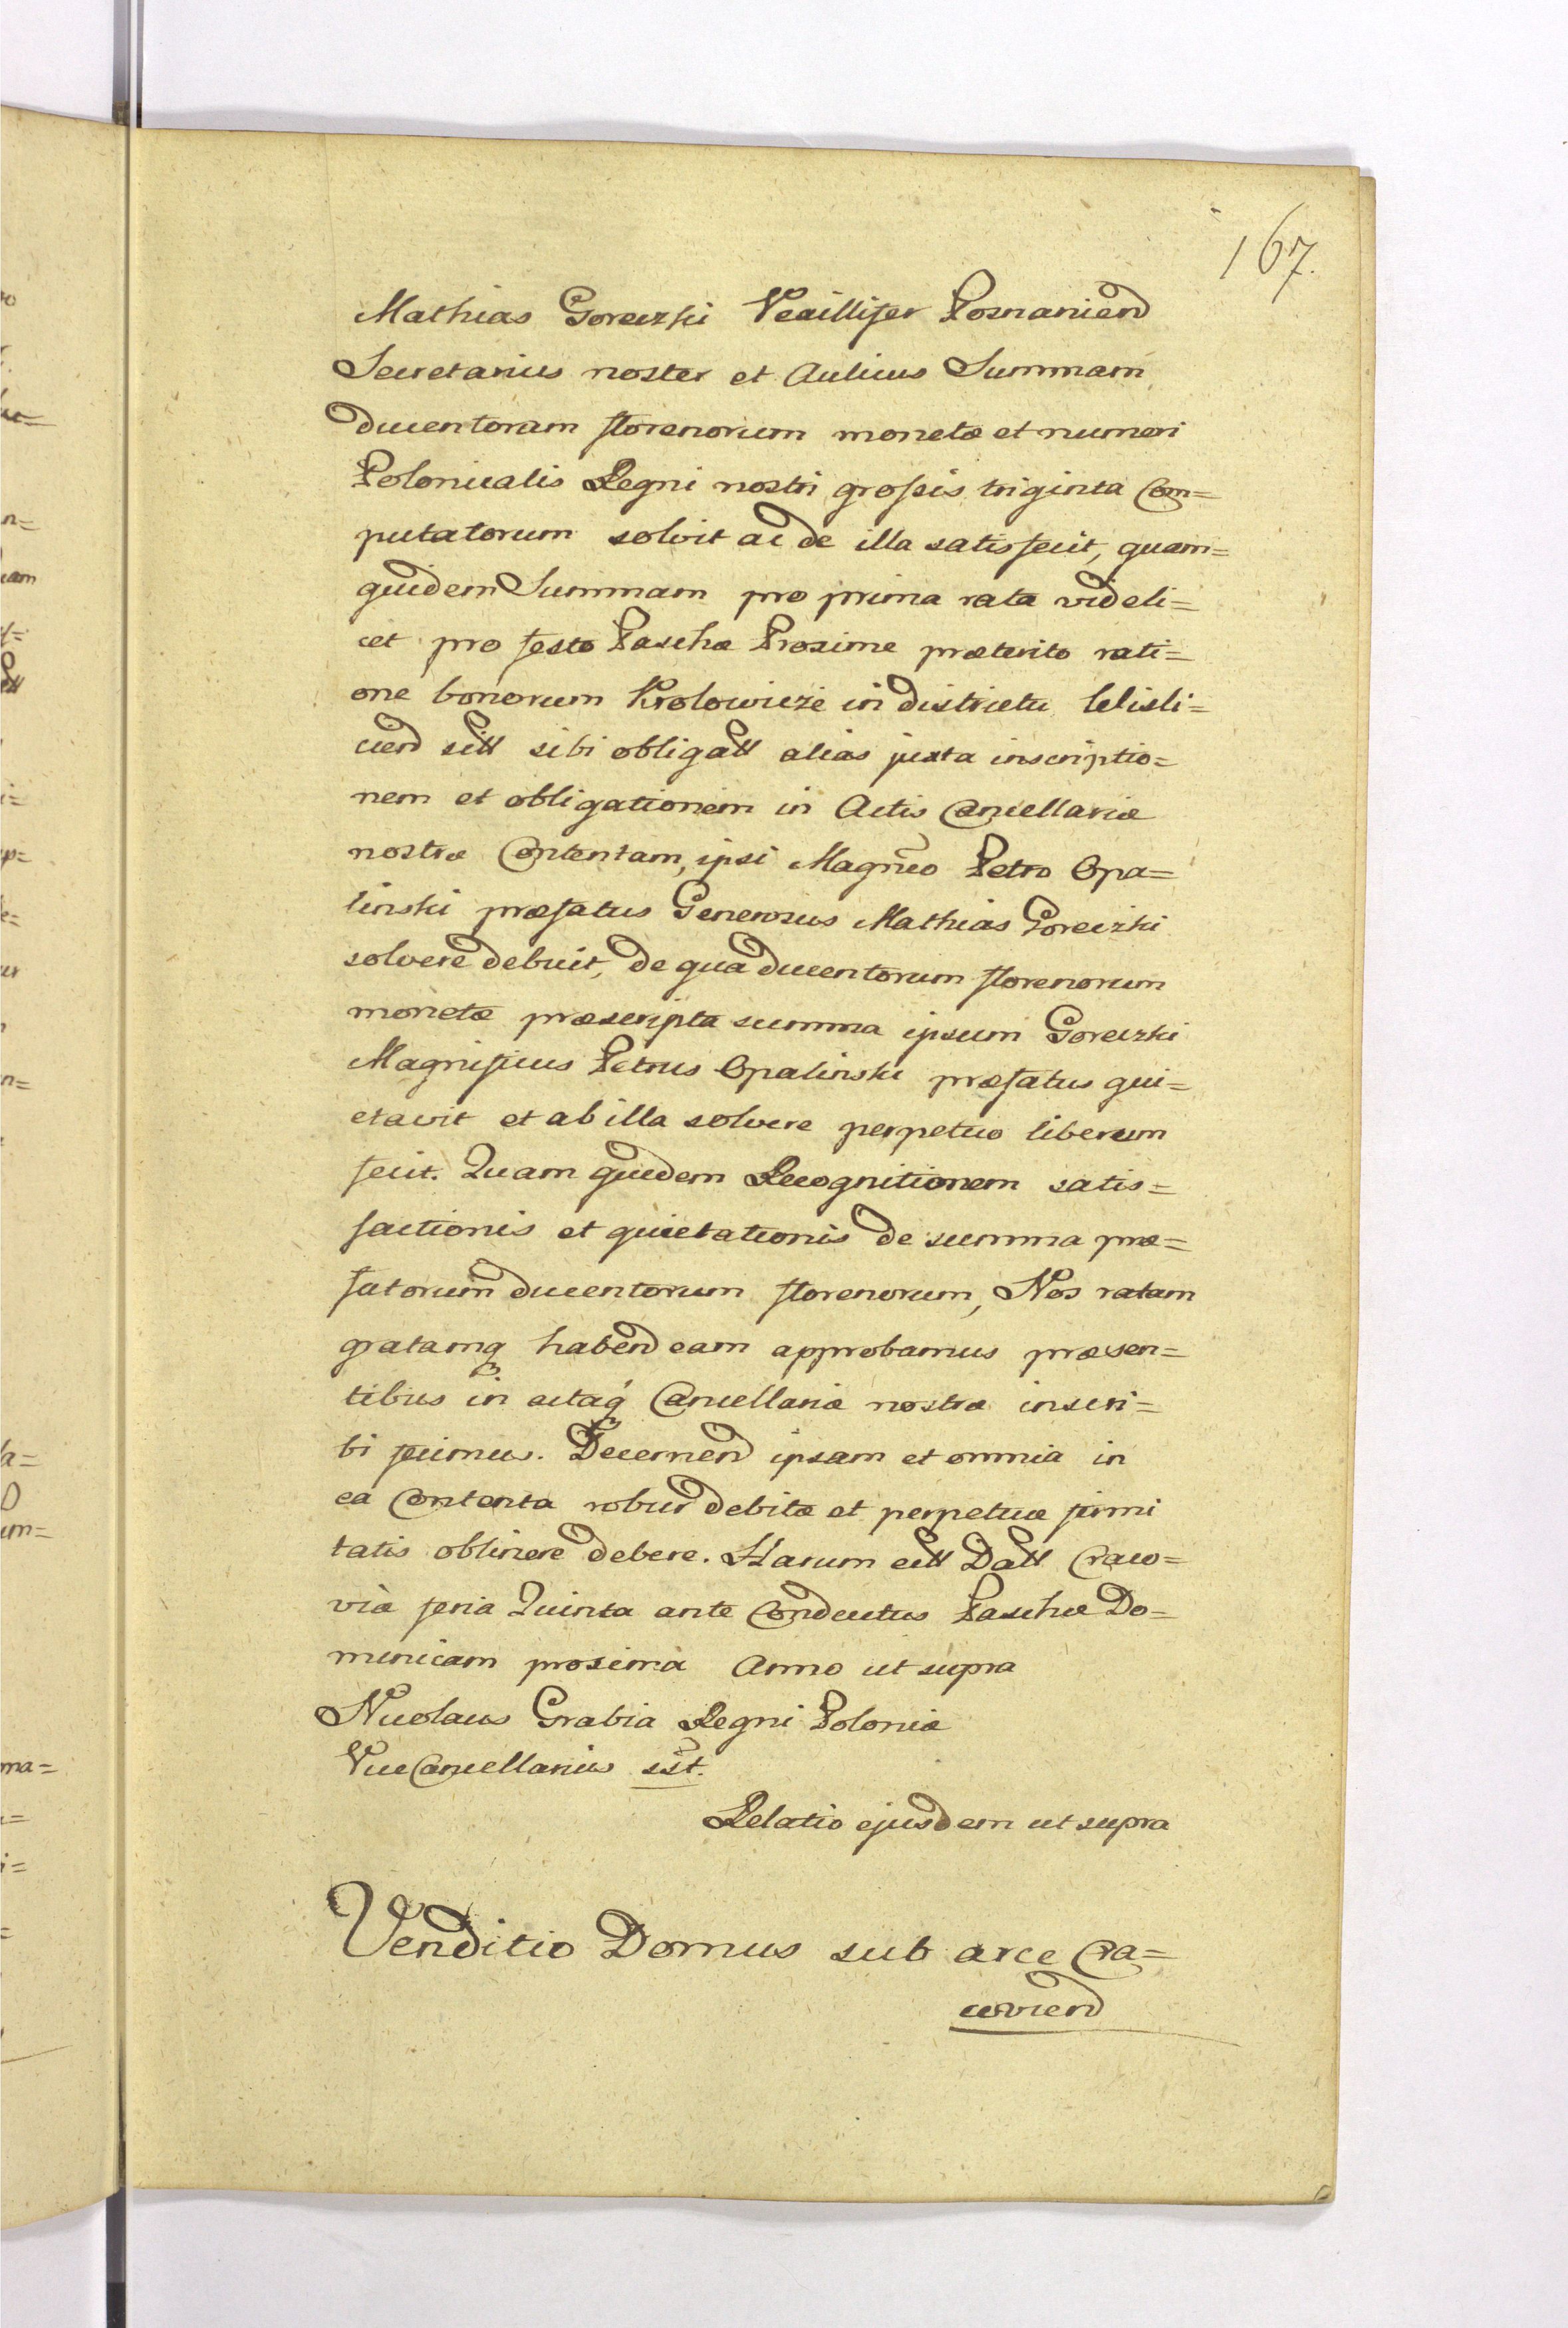 167.
Mathias Goreczki Vexillifer Posnaniend
Secretarius noster et Aulicus Summam
ducentoram florenorum monetæ et numeri
Polonicalis Regni nostri grossis triginta Com=
putatorum solvit ac de illa satisfecit, quam=
quidem Summam pro prima rata videli=
cet pro festo Paschæ Proxime præterito rati=
one bonorum Krolowicze in districtu Wisli=
ciend sitt sibi obligatt alias juxta inscriptio=
nem et obligationem in Actis Cancellariæ
nostræ Contentam, ipsi Magnco Petro Opa=
linski præfatus Generosus Mathias Goreczki
solvere debuit, de qua ducentorum florenorum
monetæ præscripta summa ipsum Goreczki
Magnificus Petrus Opalinski præfatus qui=
etavit et ab illa solvere perpetuo liberum
fecit. Quam quidem Recognitionem satis=
factionis et quietationis de summa præ=
fatorum ducentorum florenorum, Nos ratam
gratamq habend eam approbamus præsen=
tibus in actaq Cancellariæ nostræ inscri=
bi fecimus. Decernend ipsam et omnia in
ea Contenta robur debitæ et perpetuæ firmi
tatis obtinere debere. Harum ett Datt Craco=
viæ feria Quinta ante Conductus Paschæ Do=
minicam proxima Anno ut supra
Nicolaus Grabia Regni Poloniæ
ViceCancellarius sst.
Relatio ejusdem ut supra
Venditio Domus sub arce Cra=
coviend